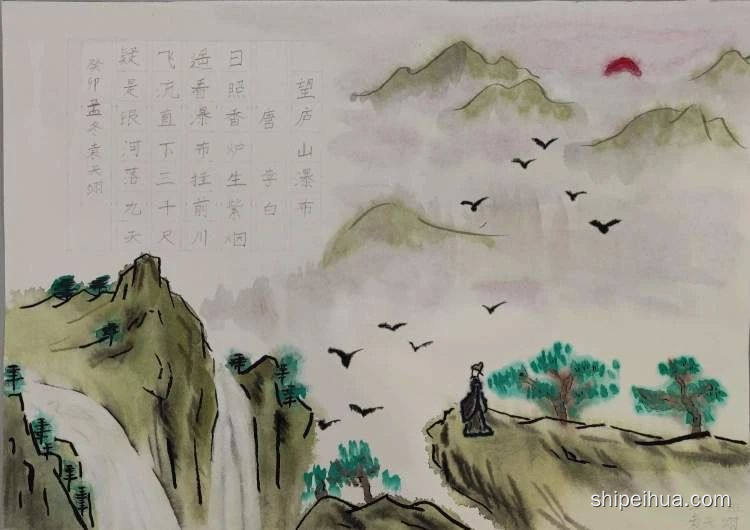 望庐山瀑布
唐 李白
日照香炉生紫烟
遥看瀑布挂前川
飞流直下三千尺
疑是银河落九天
癸卯孟冬袁天翊
shipeihua.com